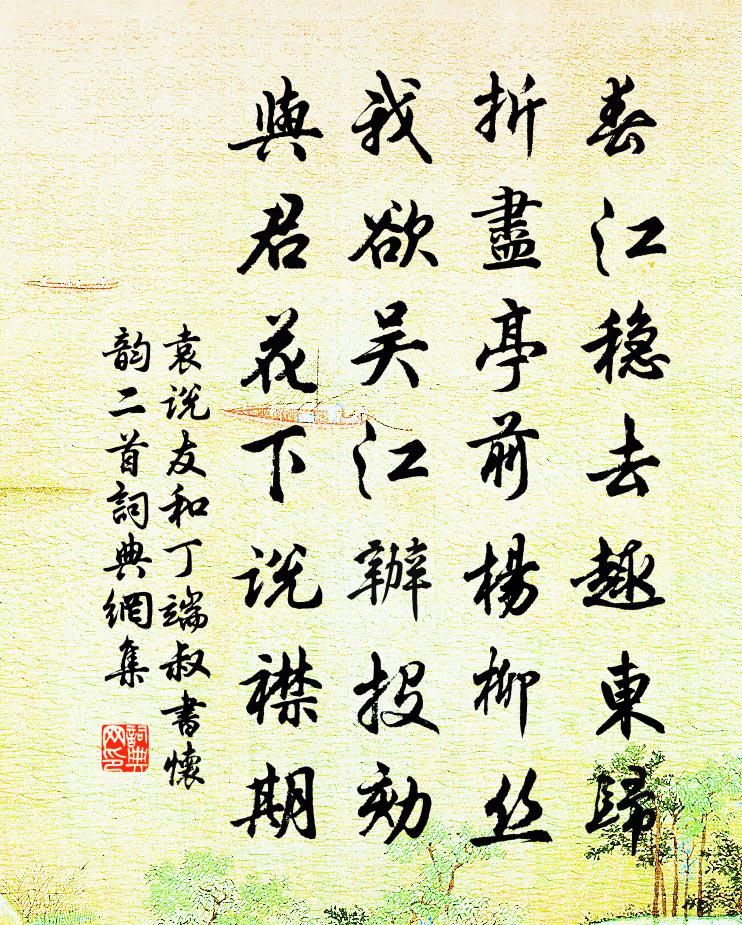 春江穩去趣東歸
折盡亭前楊柳丝
我欲吴江辦投劾
與君花下说襟期
袁说友和丁端叔書懷
韵二首詞典網集
詞典网印